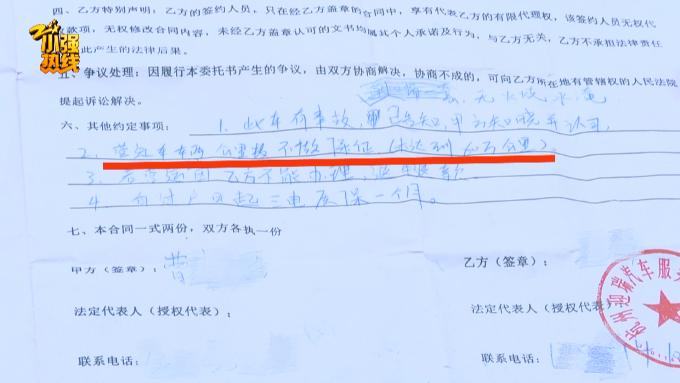 四、乙方特别声明：乙方的签约人员，只在经乙方盖章的合同中，享有代表乙方的有限代理权，该签约人员无权代
款项，无权修改合同内容，未经乙方盖章认可的文书均属其个人承诺及行为，与乙方无关，乙方不承担法律责任
此产生的法律后果。
小强热线
五、争议处理：因履行本委托书产生的争议，由双方协商解决，协商不成的，可向乙方所在地有管辖权的人民法院
提起诉讼解决。
无火烧水泡
六、其他约定事项：1. 此车有事故，里已告知，甲方知晓并认可
2. 营运车车辆公里数不做保证（未达到 万公里）。
3. 乙方不能办理，退
4. 自过户日起三电质保一个月。
七、本合同一式两份，双方各执一份
甲方（签章）：曹
乙方（签章）：
法定代表人（授权代表）：
法定代表人（授权代表）
联系电话：
联系电话：
杭州 瑞汽车服务